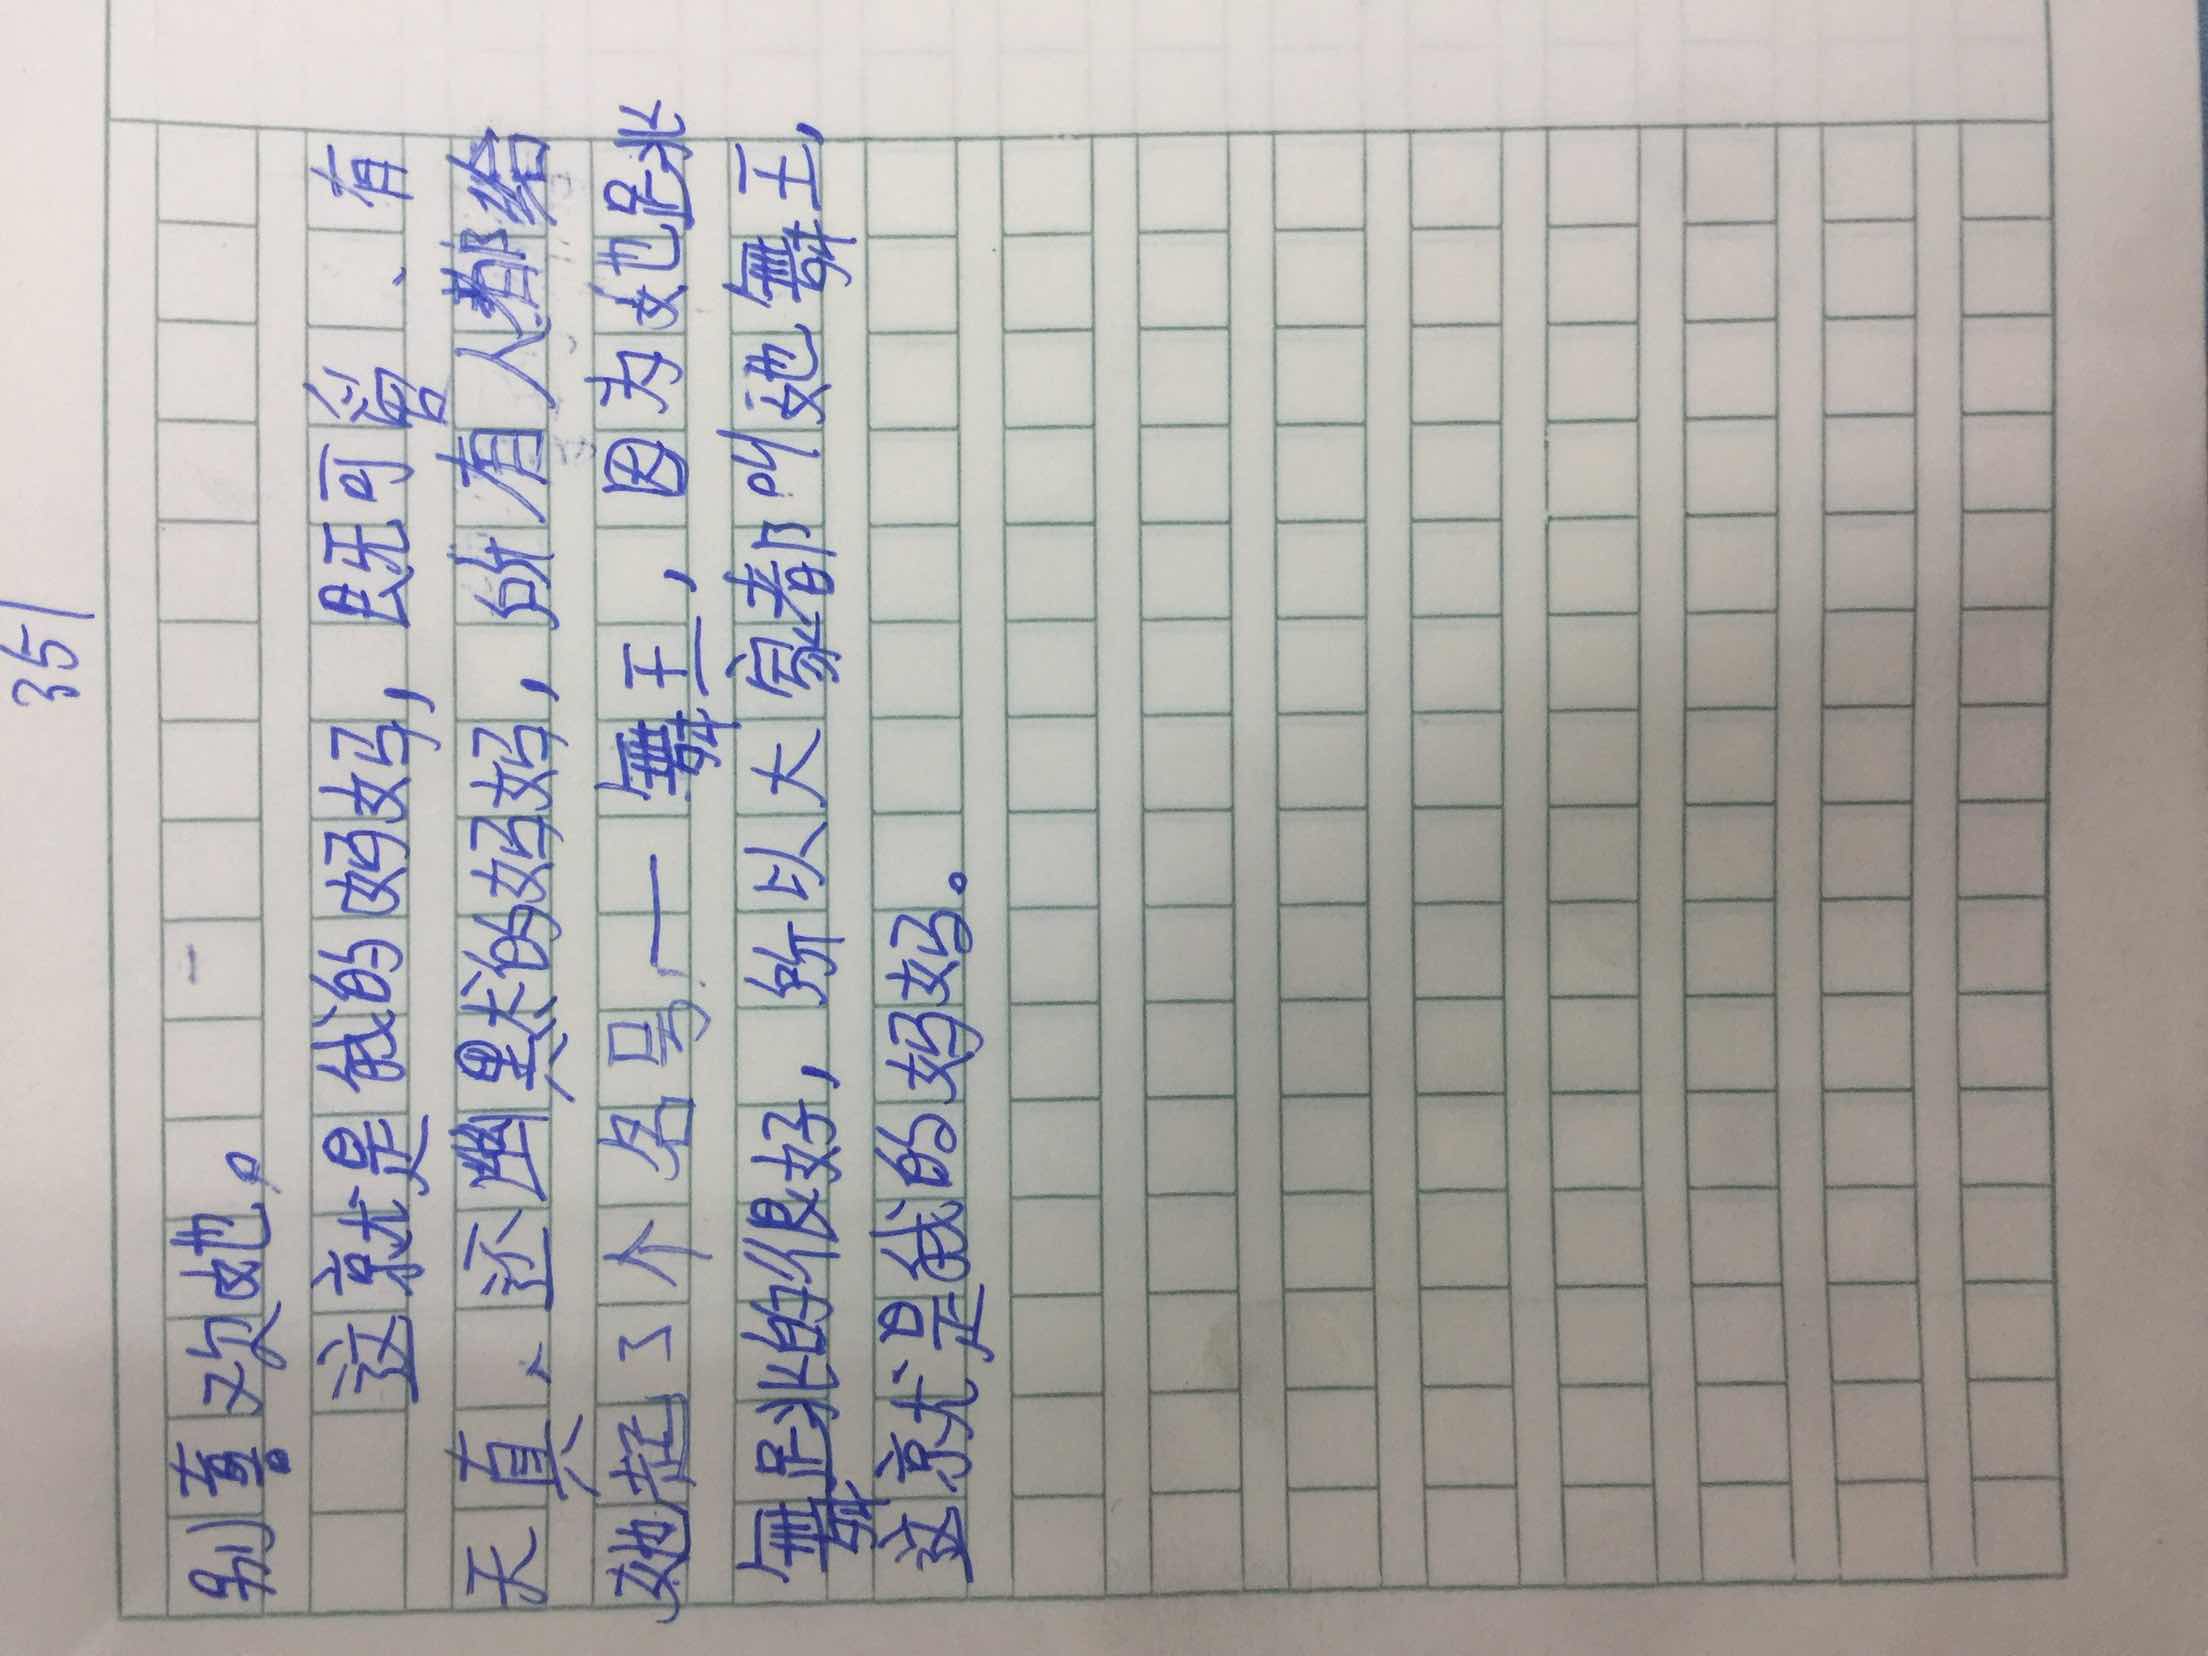 351
别喜欢她。
这就是我的妈妈，既可爱、有
天真、还幽默的妈妈，所有人都给
她起了个名号——舞王，因为她跳
舞跳的很好，所以大家都叫她舞王，
这就是我的妈妈。